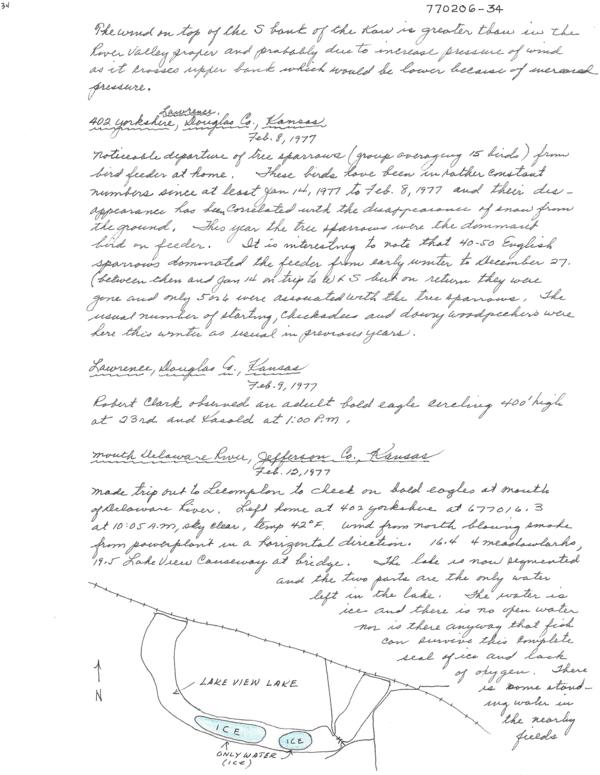 34
770206-34
The wind on top of the S bank of the Kaw is greater than in the
River Valley proper and probably due to increase pressure of wind
as it crosses upper bank which would be lower because of increased
pressure.
Lawrence,
402 yorkshire, Douglas Co., Kansas
Feb. 8, 1977
Noticeable departure of tree sparrows (group averaging 15 birds) from
bird feeder at home. These birds have been in rather constant
numbers since at least Jan 14, 1977 to Feb. 8, 1977 and their dis-
appearance has been correlated with the disappearance of snow from
the ground. This year the tree sparrows were the dominant
bird on feeder. It is interesting to note that 40-50 English
sparrows dominated the feeder from early winter to December 27.
(between then and Jan 14 on trip to W & S but on return they were
gone and only 5 or 6 were associated with the tree sparrows. The
usual number of starling, Chickadees and downy woodpeckers were
here this winter as usual in previous years.
Lawrence, Douglas Co., Kansas
Feb. 9, 1977
Robert Clark observed an adult bald eagle circling 400' high
at 23rd and Kasold at 1:00 P.M.
Mouth Delaware River, Jefferson Co., Kansas
Feb. 12, 1977
Made trip out to Lecompton to check on bald eagles at mouth
of Delaware River. Left home at 402 yorkshire at 677016.3
at 10:05 A.M., sky clear, temp 42°F. wind from north blowing smoke
from powerplant in a horizental direction. 16.4 4 meadowlarks,
19.5 Lake View Causeway at bridge. The lake is now segmented
and the two parts are the only water
left in the lake. The water is
ice and there is no open water
nor is there anyway that fish
can survive this complete
seal of ice and lack
of oxygen. There
is some stand-
ing water in
the nearby
fields
N
LAKE VIEW LAKE
ICE
ICE
ONLY WATER
(ICE)